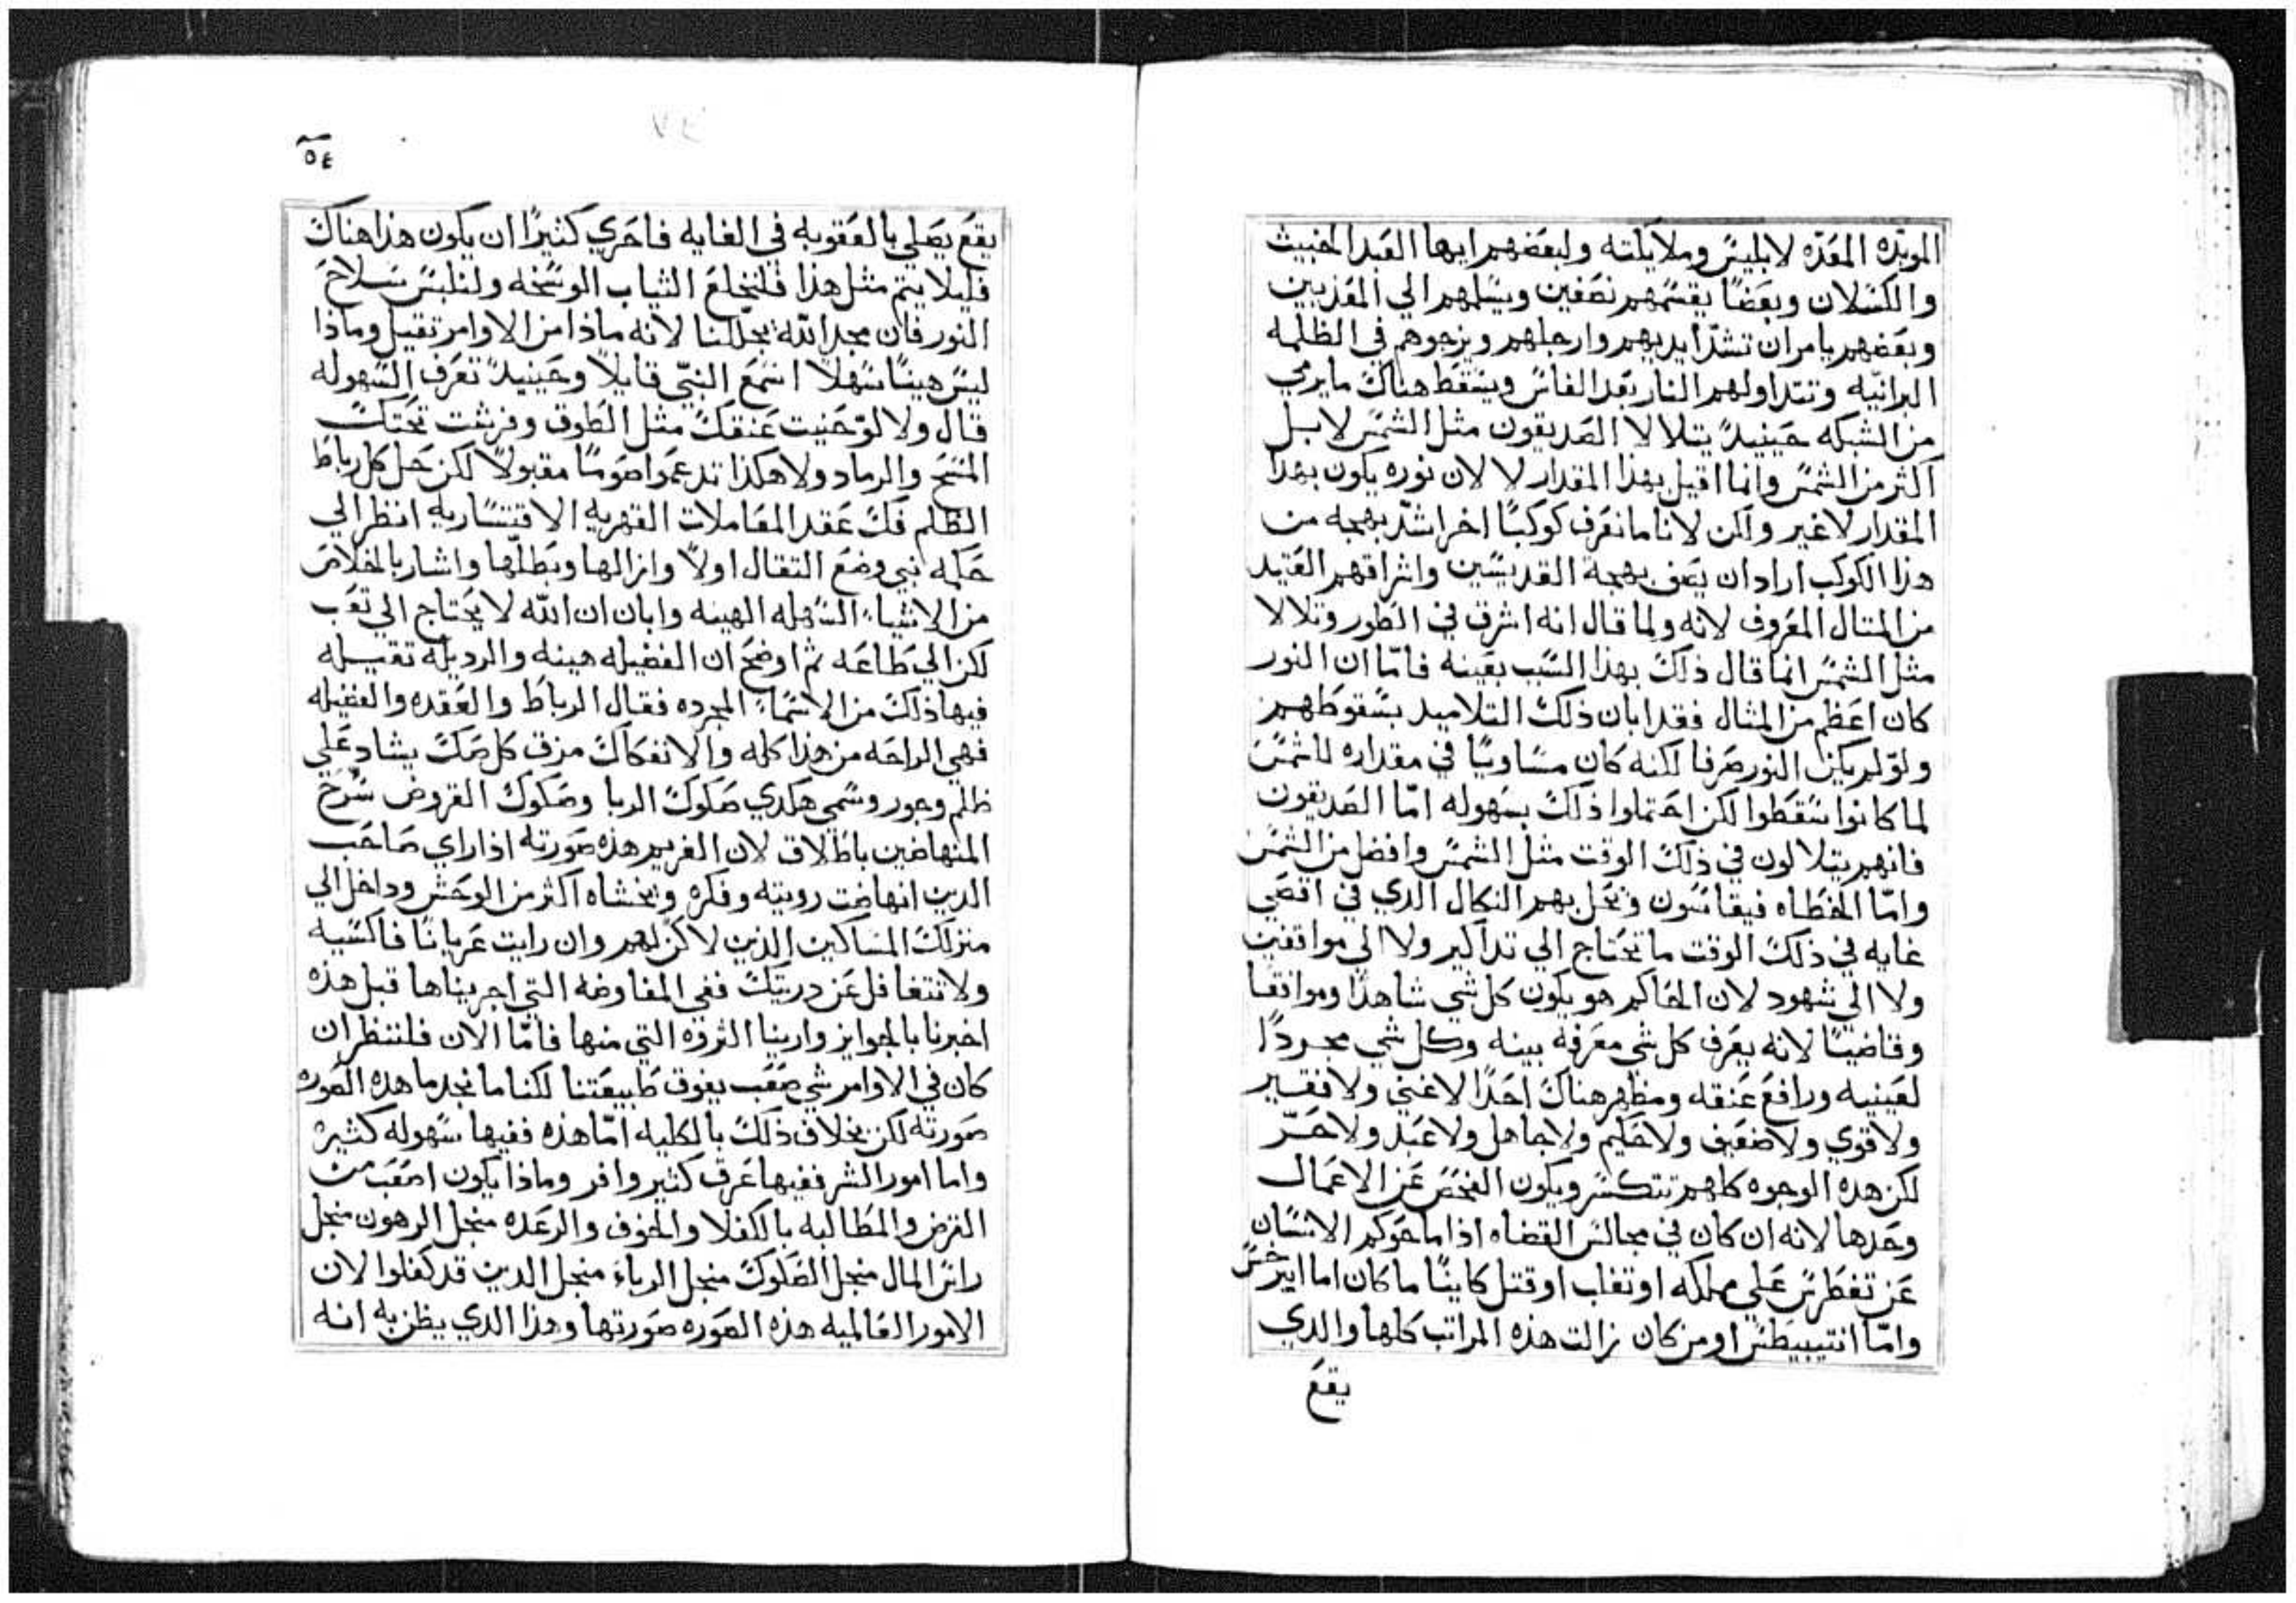 الموبده المعده لابليس وملايكته ولبعضهم ايها العبد الخبيث
والكسلان وبعضا يقسمهم نصفين ويسلمهم الي المعذبين
وبعضهم يامر ان تشد ايديهم وارجلهم ويزجوهم في الظلمه
البرانيه وتتداولهم النار بعد الفاس ويسقط هناك ما يرمي
من الشبكه حينيد يتلالا الصديقون مثل الشمس لا بل
اكثر من الشمس وانما اقيل بهذا المقدار لا لان نوره يكون بهدا
المقدار لا غير ولكن لانا ما نعرف كوكبا اخر اشد بهجه من
هذا الكوكب اراد ان يصف بهجة القديسين واشراقهم العتيد
من المتال المعروف لانه ولما قال انه اشرق في الطور وتلالا
مثل الشمس انما قال ذلك بهذا السبب بعينه فاما ان النور
كان اعظم من المثال فقد ابان ذلك التلاميد بسقوطهم
ولو لم يكن النور صرفا لكنه كان مساويا في مقداره للشمس
لما كانوا سقطوا لكن احتملوا ذلك بسهوله اما الصديقون
فانهم يتلالون في ذلك الوقت مثل الشمس وافضل من الشمس
واما الخطاه فيقاسون ويحل بهم النكال الدي في اقصي
غايه في ذلك الوقت ما تحتاج الي تداكير ولا الي مواقفين
ولا الي شهود لان الحاكم هو يكون كل شي شاهدا وموافقا
وقاضيا لانه يعرف كل شي معرفه بينه وكل شي مجردا
لعينيه ورافع عنقه ومظهر هناك احدا لا غني ولا فقير
ولا قوي ولا ضعيف ولا حكيم ولا جاهل ولا عبد ولا حر
لكن هده الوجوه كلهم تتكسر ويكون الفحص عن الاعمال
وحدها لانه ان كان في مجالس القضاه اذا ما حوكم الانسان
عن تغطرس علي مملكه او تغلب او قتل كاينا ما كان اما ايبرخس
واما انتيبيطس او من كان زالت هذه المراتب كلها والدي
يقع
٥٤
يقع يصلي بالعقوبه في الغايه فاحري كثيرا ان يكون هذا هناك
فليلا يتم مثل هذا فلنخلع الثياب الوسخه ولنلبس سلاح
النور فان مجد الله يجللنا لانه ماذا من الاوامر تقيل وماذا
ليس هينا سهلا اسمع النبي قايلا وحينيد تعرف السهوله
قال ولا لو حنيت عنقك مثل الطوق وفرشت تحتك
المسح والرماد ولا هكذا تدعموا صوما مقبولا لكن حل كل رباط
الظلم فك عقد المعاملات القهريه الاقتساريه انظر الي
حكمه نبي وضع التقال اولا وازالها وبطلها واشار بالخلاص
من الاشياء السهله الهينه وابان ان الله لا يحتاج الي تعب
لكن الي طاعه ثم اوضح ان الفضيله هينه والرديله تقيله
فيها ذلك من الاسماء المجرده فقال الرباط والعقده والفضيله
فهي الراحه من هذا كله والانفكاك مزق كل صك يشاد علي
ظلم وجور وسمي هكدي صكوك الربا وصكوك القروض سرح
المنهاضين باطلاق لان الغريم هذه صورته اذا راي صاحب
الدين انهاضت رويته وفكره ويخشاه اكثر من الوحش وداخل الي
منزلك المساكين الذين لا كن لهم وان رايت عريانا فاكسيه
ولا تتغافل عن دريتك ففي المفاوضه التي اجريناها قبل هذه
اخبرنا بالجوايز وارينا الثروه التي منها فاما الان فلننظر ان
كان في الاوامر شي صعب يفوق طبيعتنا لكنا ما نجد ما هده الصوره
صورته لكن بخلاف ذلك بالكليه اما هذه ففيها سهوله كثيره
واما امور الشر ففيها عرق كثير وافر وماذا يكون اصعب من
القرض والمطالبه بالكفلا والخوف والرعده منجل الرهون منجل
راس المال منجل الصكوك منجل الرباء منجل الدين قد كفلوا لان
الامور العالميه هذه الصوره صورتها وهذا الدي يظن به انه